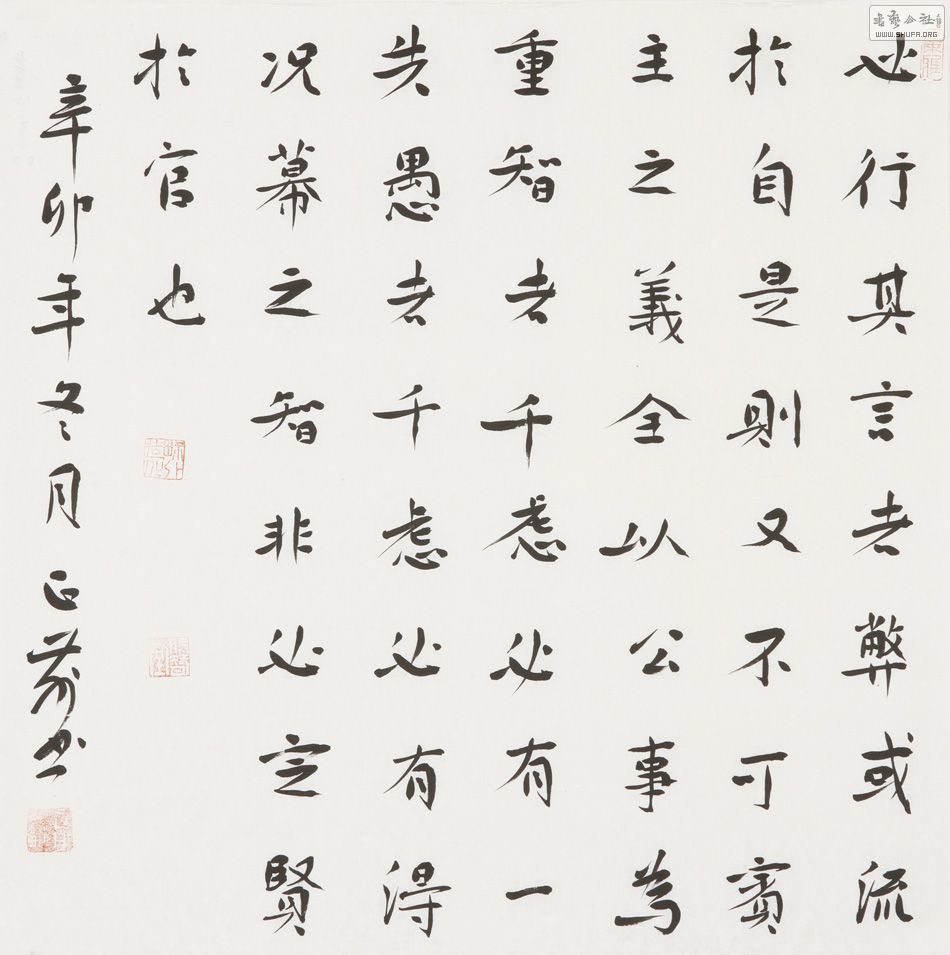 必行其言者弊或流
於自是則又不可賓
主之義全以公事為
重智者千慮必有一
失愚者千慮必有得
況幕之智非必定賢
於官也
辛卯年冬月正
書
WWW.SHUFA.ORG